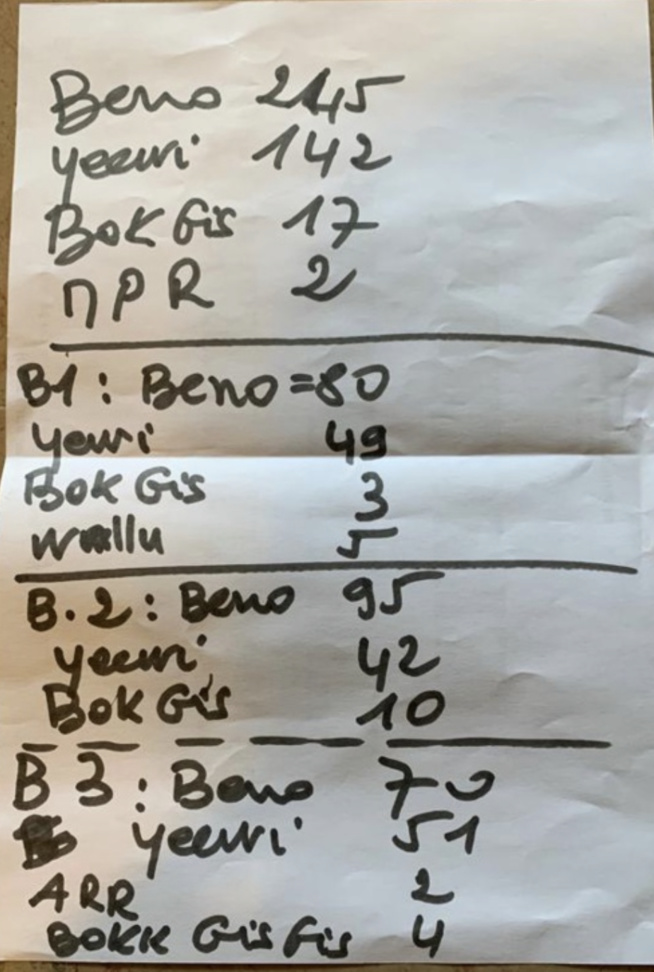 Beno 245
yeewi 142
Bok Gis 17
MPR 2
B1 : Beno = 80
yewi 49
Bok Gis 3
wallu 5
B.2 : Beno 95
yeewi 42
Bok Gis 10
B 3 : Beno 70
yeewi 51
ARR 2
BOKK Gis Gis 4